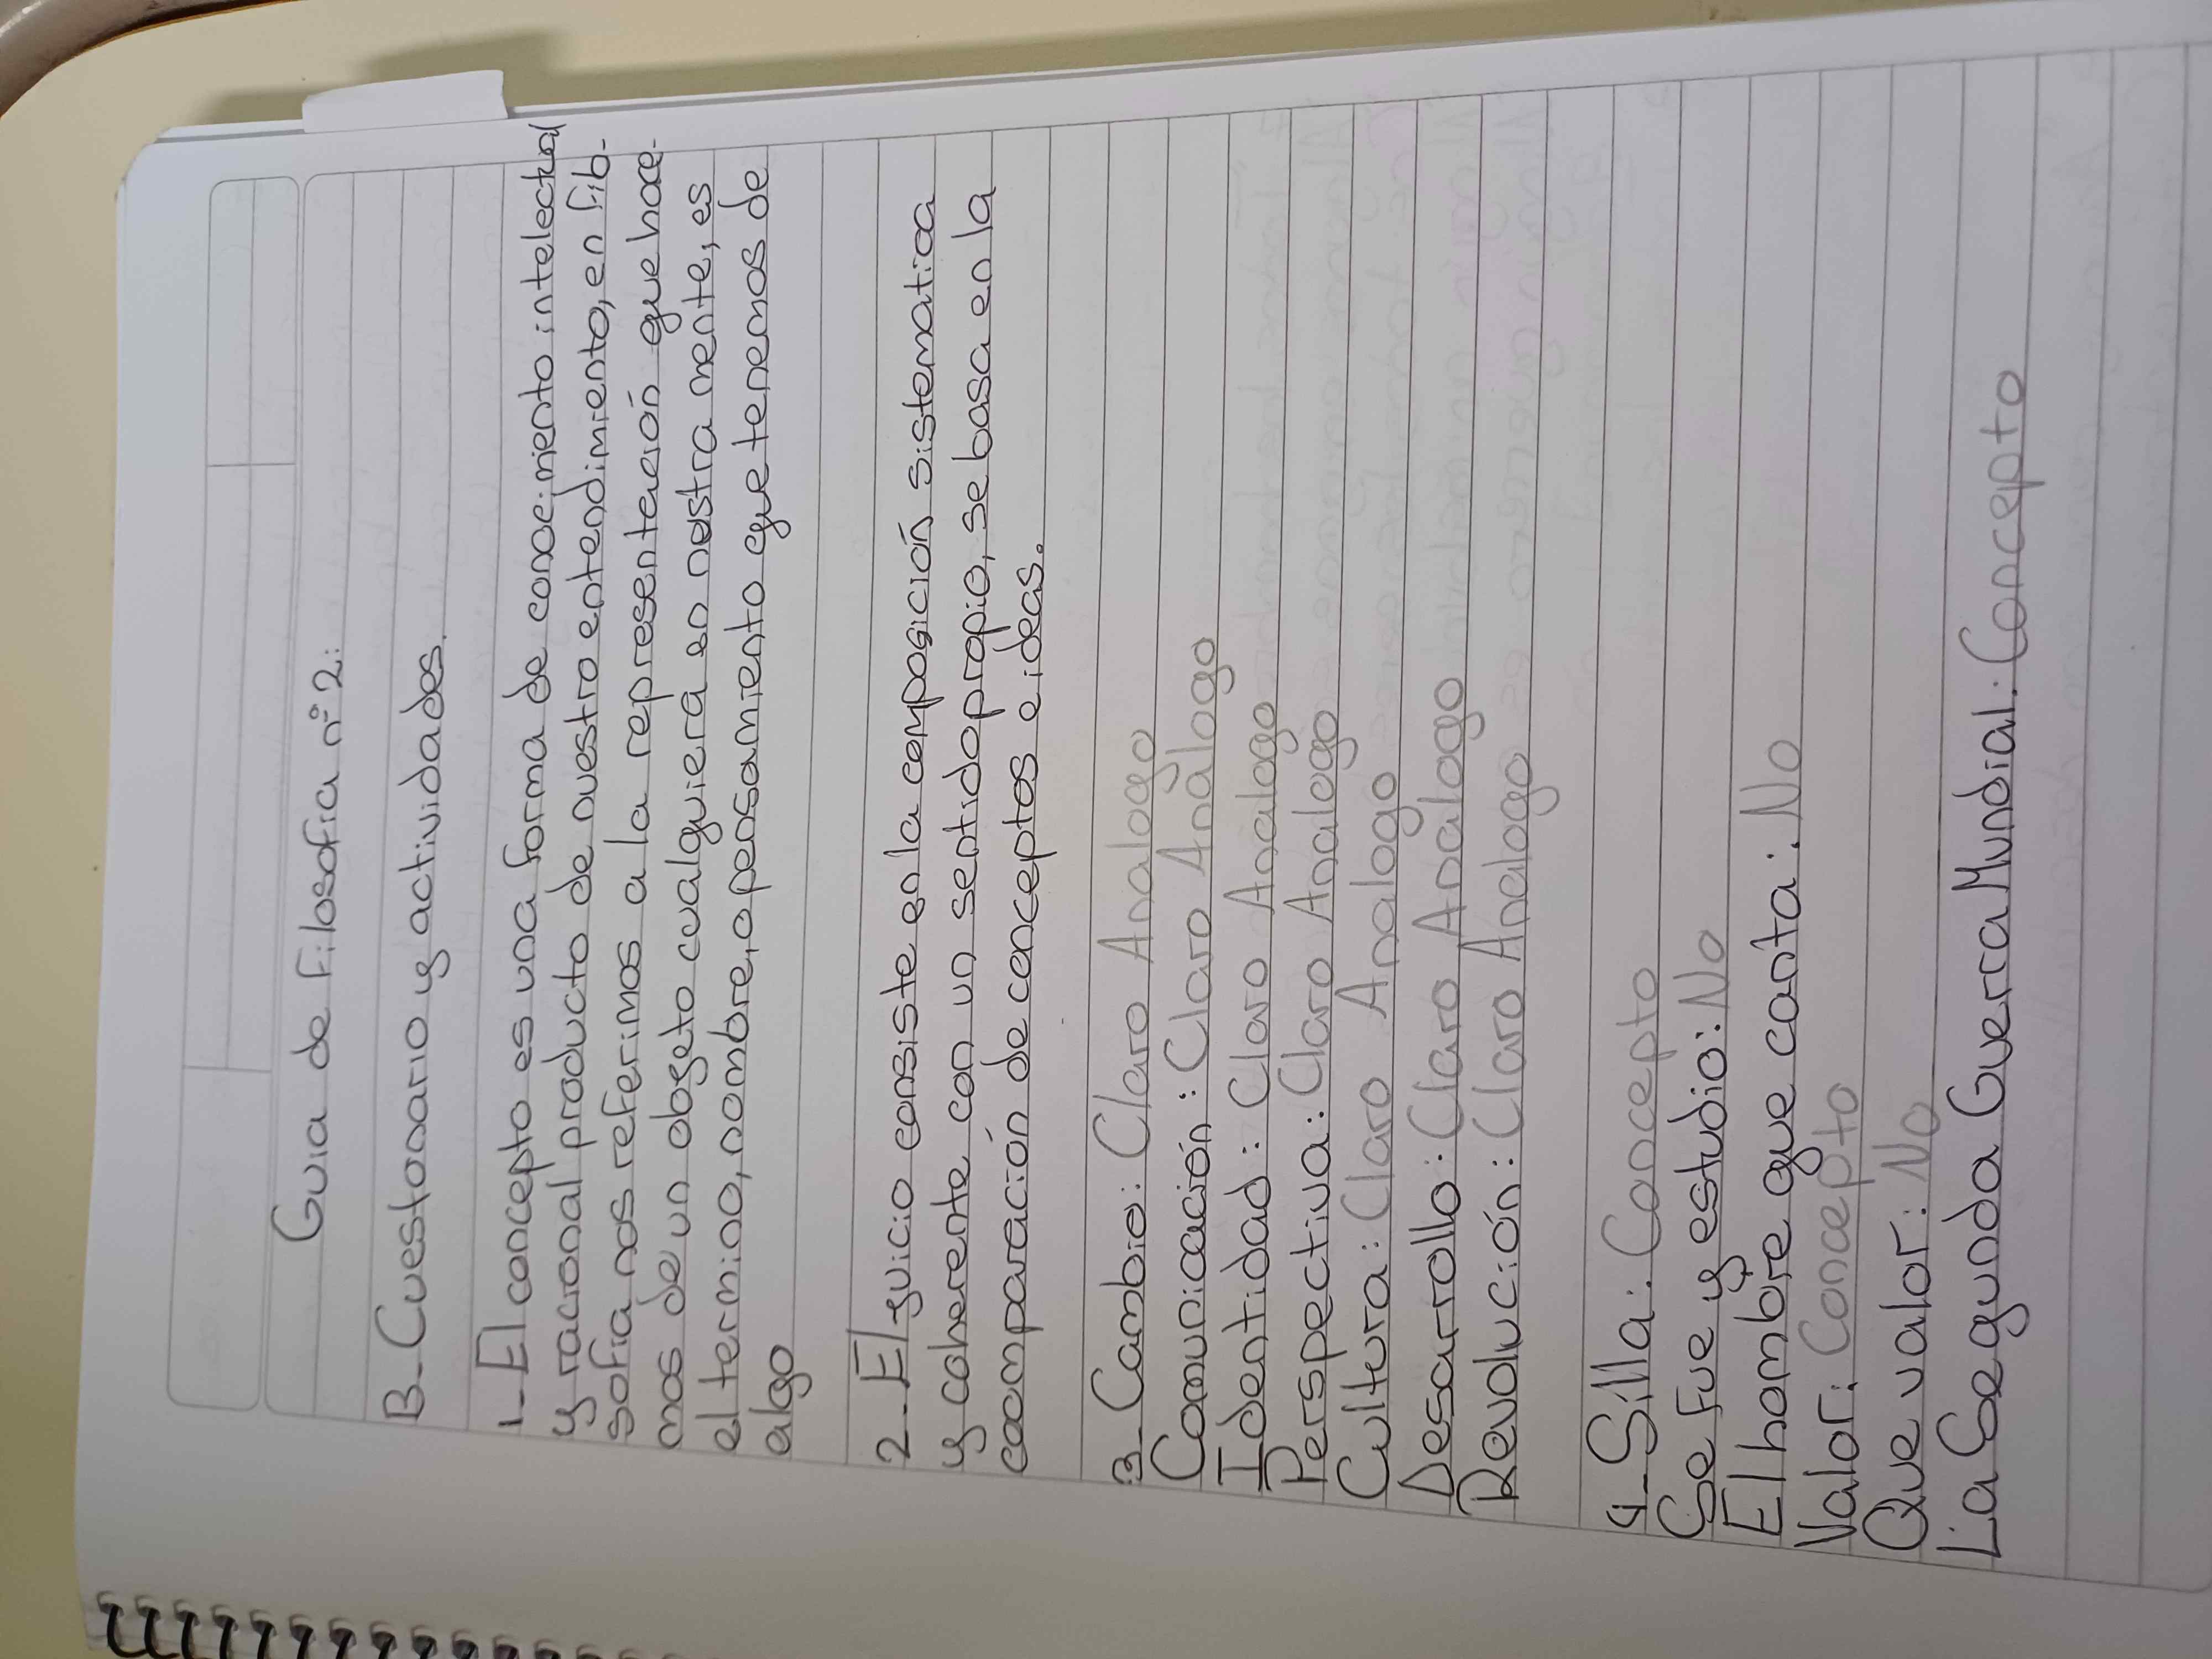 Guia de Filosofia n°2:
B_Cuestonario y actividades.
1_El concepto es una forma de conocimiento intelectual
y racional producto de nuestro entendimiento, en filo-
sofia nos referimos a la representación que hace-
mos de un obgeto cualquiera en nustra mente, es
el termino, nombre, o pensamiento que tenemos de
algo
2_El guicio consiste en la composición sistematica
y coherente con un sentido propio, se basa en la
comparación de conceptos e ideas.
3_Cambio: Claro Analogo
Comunicación: Claro Análogo
Identidad: Claro Analogo
Perspectiva: Claro Analogo
Cultura: Claro Analogo
Desarrollo: Claro Análogo
Revolución: Claro Analogo
4_Silla: Concepto
Se fue y estudio: No
El hombre que canta: No
Valor: Concepto
Que valor: No
La Segunda Guerra Mundial: Concepto